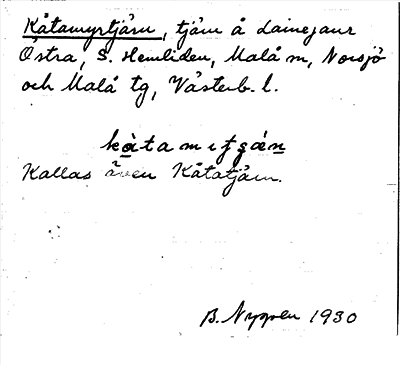 Kåtamyrtjärn, tjärn å Lainejaur
Östra, S. Hemliden, Malå sn, Norsjö
och Malå tg, Västerb. l.
Kallas även Kåtatjärn.
B. Nyppen 1930